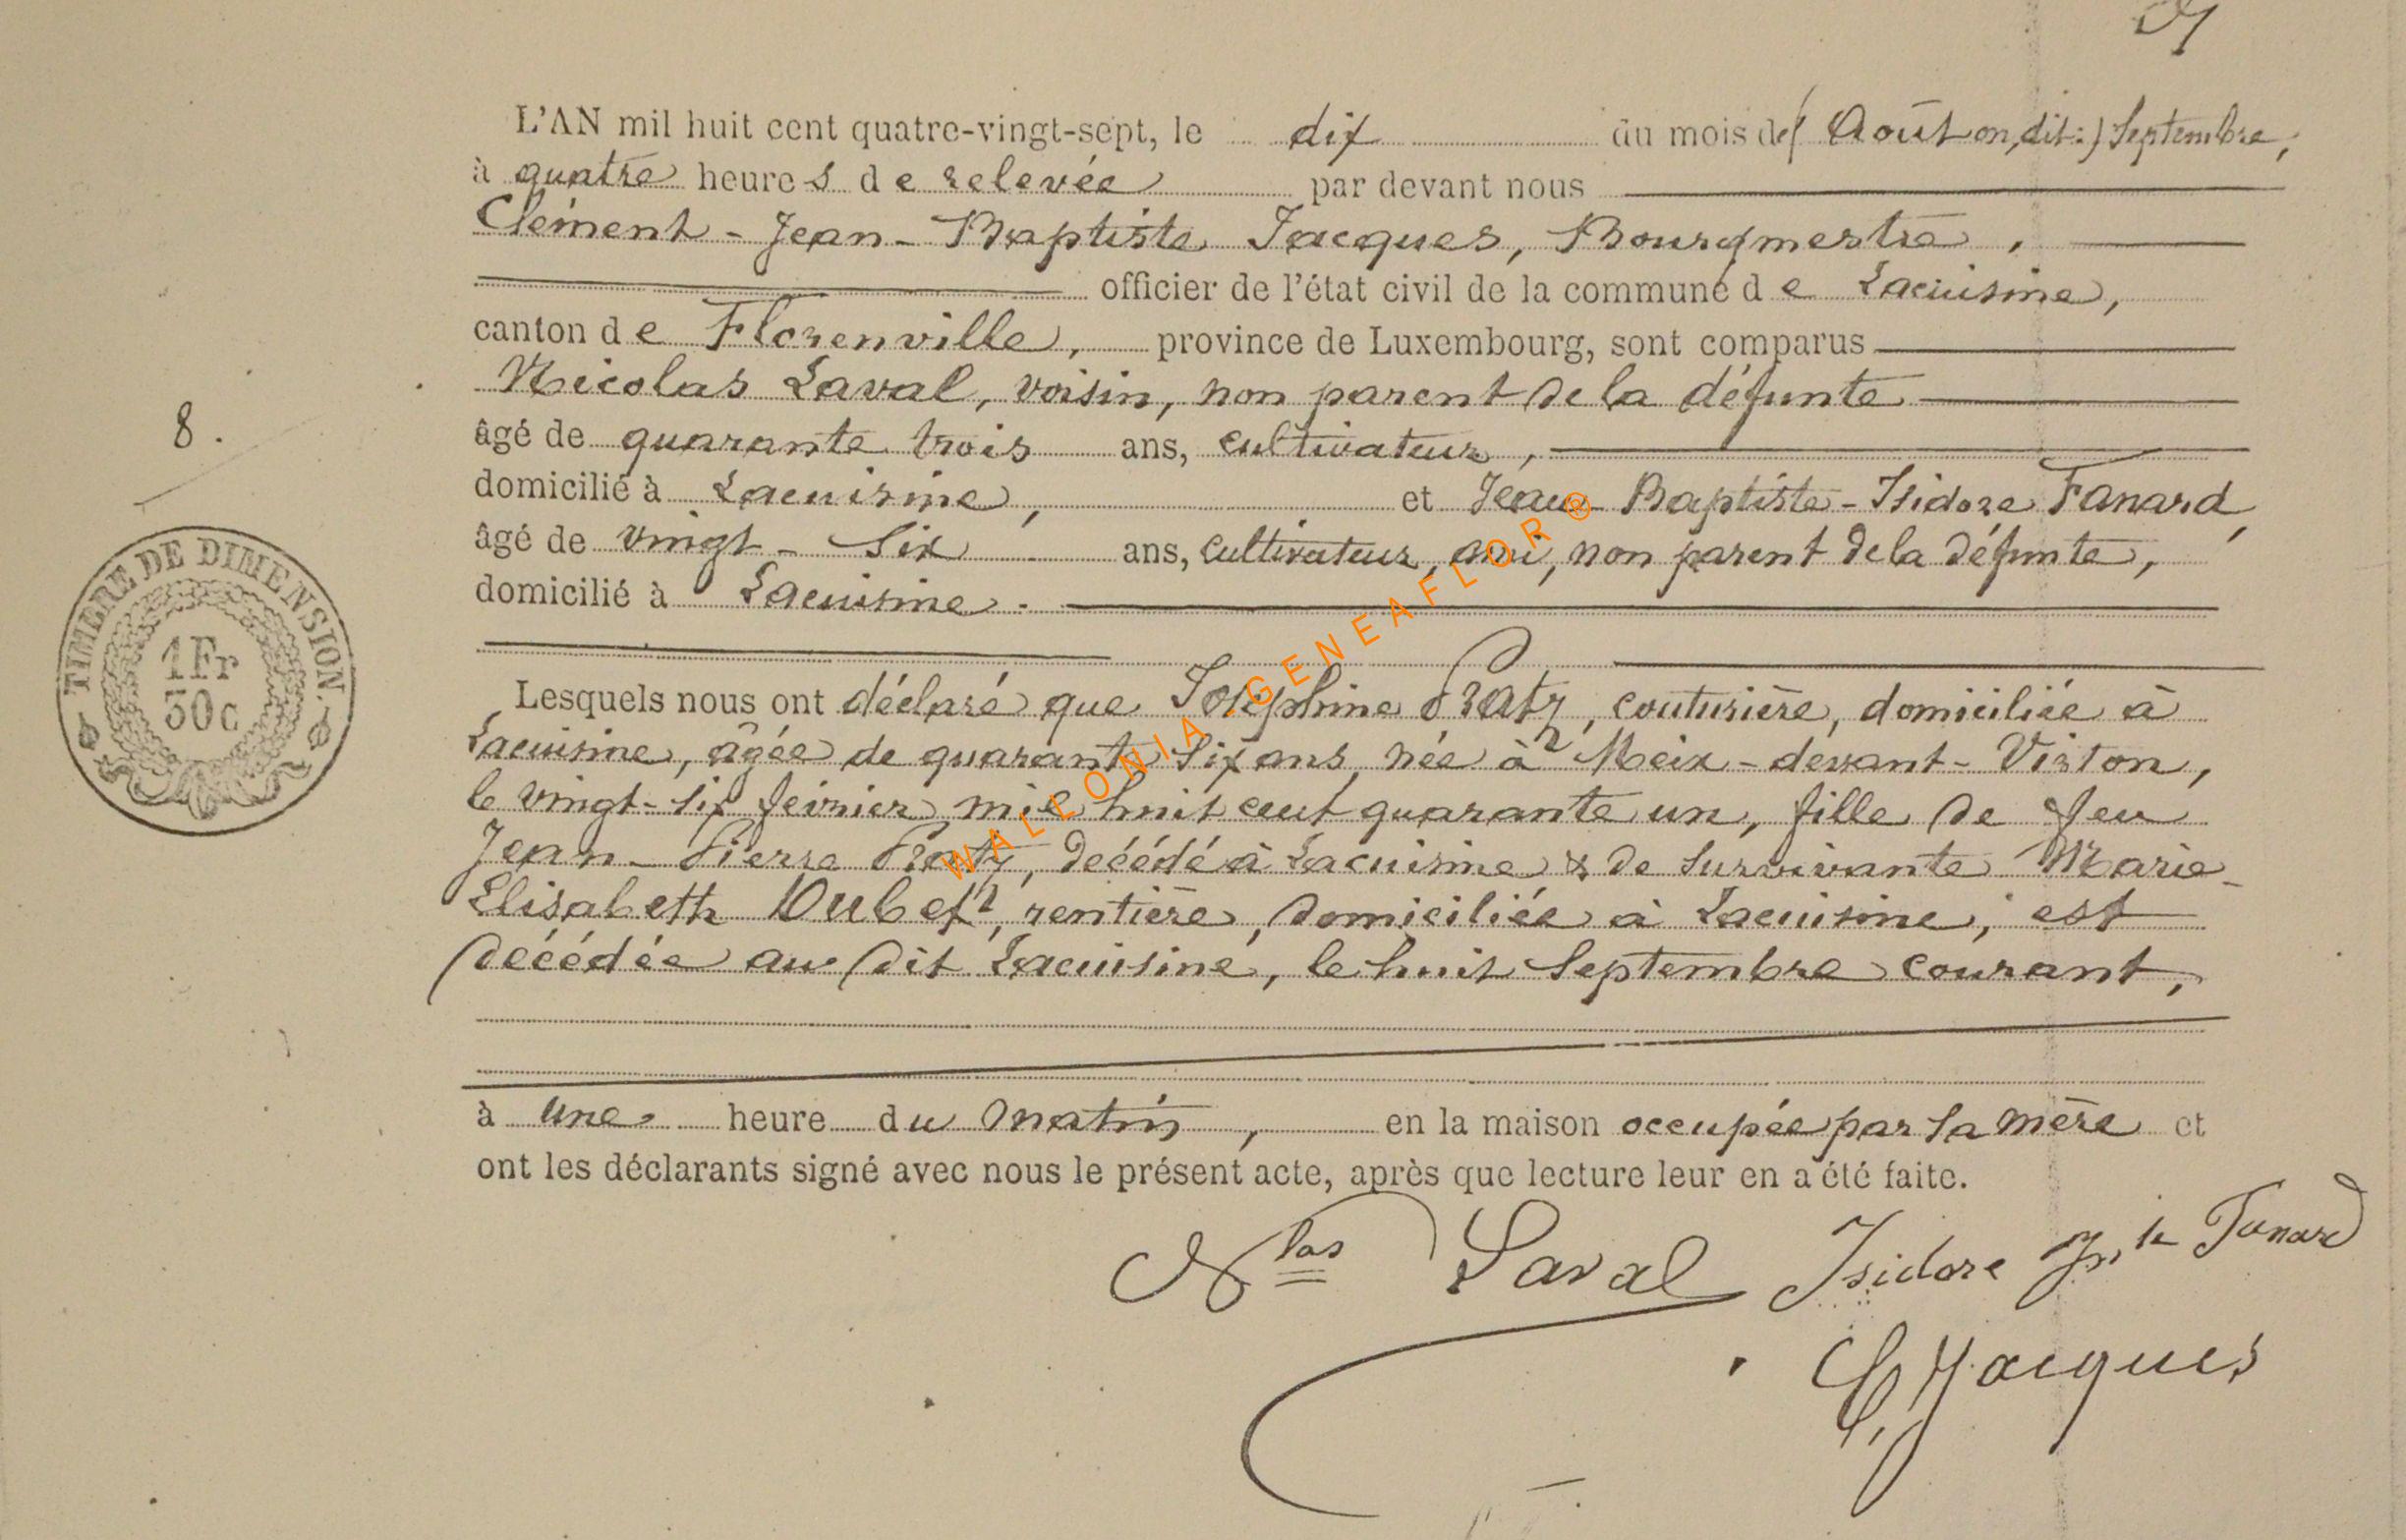 L'AN mil huit cent quatre-vingt-sept, le dix du mois de ( Août on dit : ) Septembre,
à quatre heures de relevée par devant nous
Clément - Jean - Baptiste Jacques, Bourgmestre,
officier de l'état civil de la commune de Lacuisine,
canton de Florenville, province de Luxembourg, sont comparus
Nicolas Laval, voisin, non parent de la défunte
8.
âgé de quarante trois ans, cultivateur,
domicilié à Lacuisine, et Jean - Baptiste - Isidore Fanard,
âgé de vingt - six ans, cultivateur, ami, non parent de la défunte,
domicilié à Lacuisine.
TIMBRE DE DIMENSION
1Fr
50c
Lesquels nous ont déclaré que Joséphine Pratz, couturière, domiciliée à
Lacuisine, âgée de quarante six ans, née à Meix - devant - Virton,
le vingt - six février mil huit cent quarante un, fille de feu
Jean - Pierre Pratz, décédé à Lacuisine & de survivante Marie -
Elisabeth rentière, domiciliée à Lacuisine, est
décédée au dit Lacuisine, le huit Septembre courant,
à une heure du matin, en la maison occupée par sa mère et
ont les déclarants signé avec nous le présent acte, après que lecture leur en a été faite.
Nlas Laval Isidore Jn Bte Fanard
C Jacques
WALLONIA GENEAFLOR®